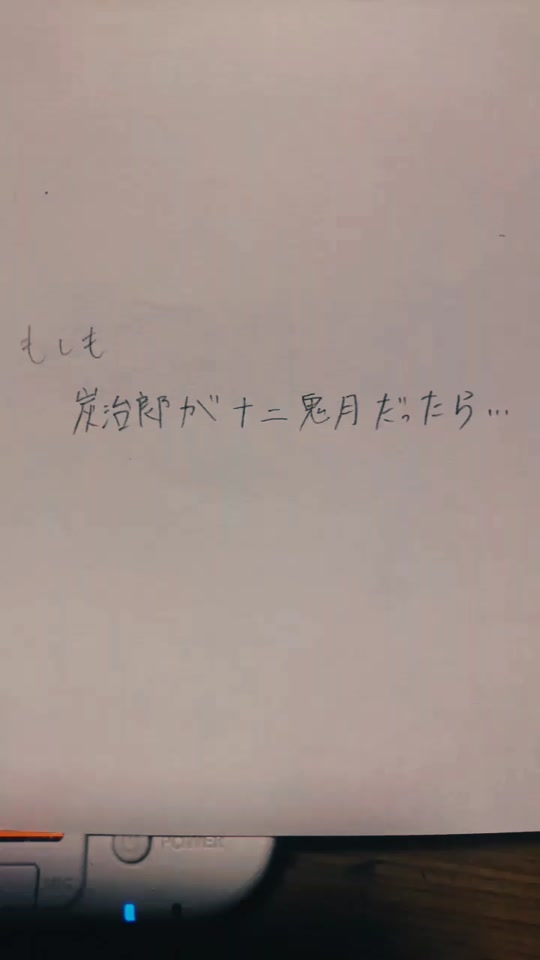 もしも
炭治郎が十二鬼月だったら…
POWER
MIC